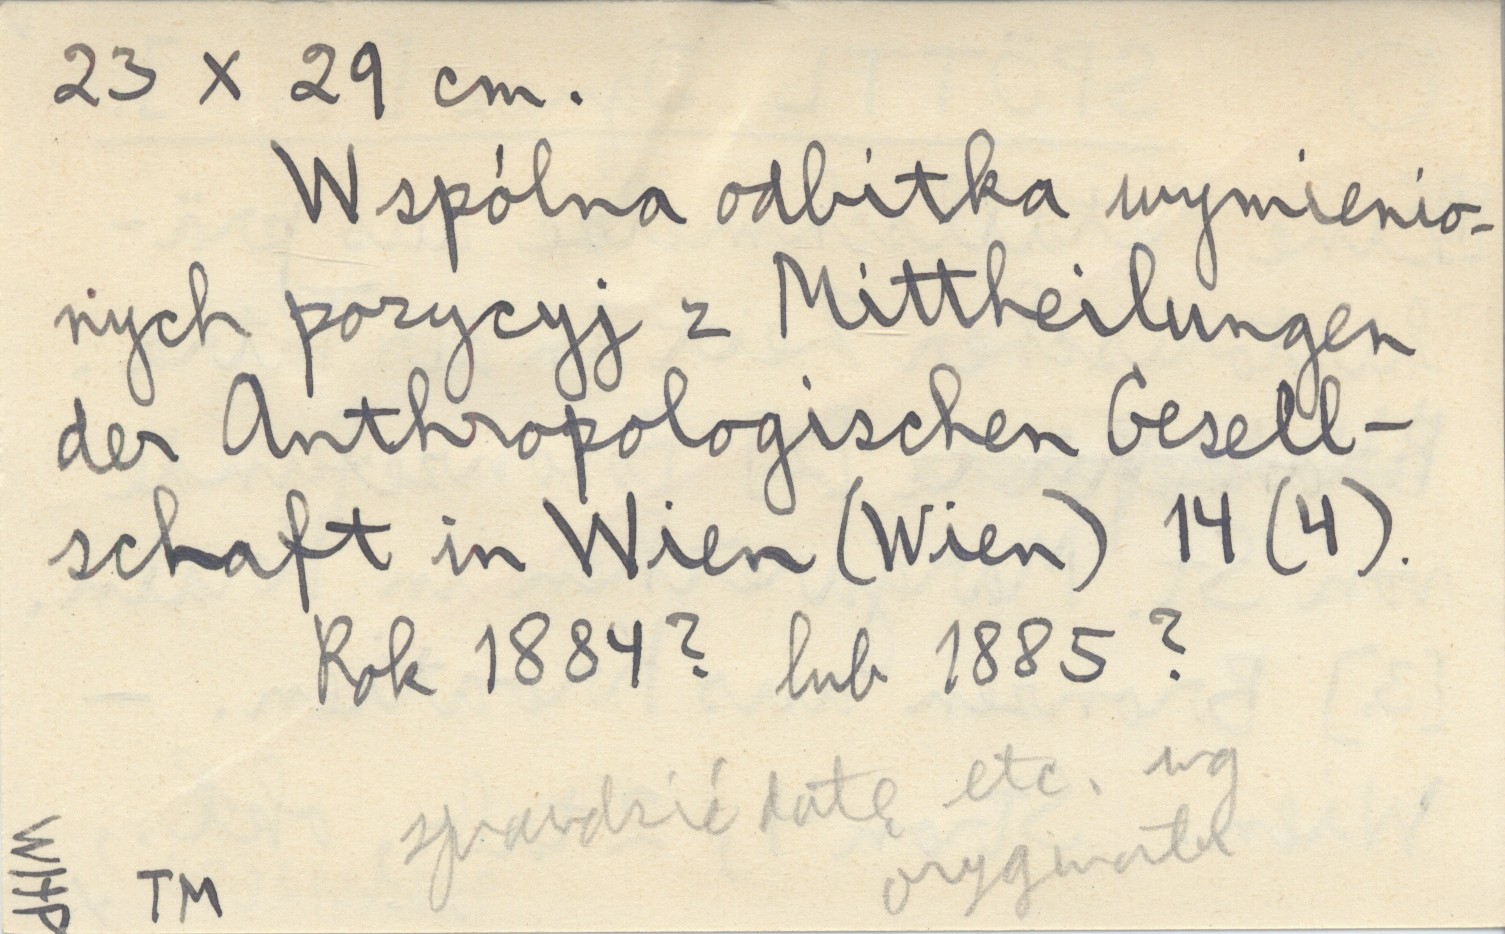 23 x 29 cm.
Wspólna odbitka wymienio-
nych pozycyj z Mittheilungen
der Anthropologischen Gesell-
schaft in Wien (Wien) 14 (4).
Rok 1884? lub 1885?
sprawdzić datę etc. wg
oryginału
WHP
TM